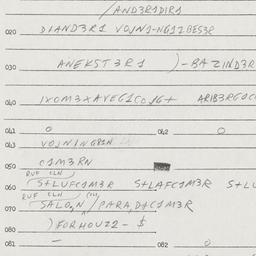 /AND3R1DIR1
020 DIAND3R1 VOJN1-NG1ZBES3R
030 ANEKST3R1 )-BAZIND3R
040 1XOM3XAVEG1CO1G+ ARIB3RG1C
041 0 042 0
043 VOJNINGR1H
050 C1M3RN
RUF CLN
060 S+LUFC1M3R S+LAFC1M3R S+LU
RUF CLN
070 SALO,N /PARA,D+C1M3R
080 )FORHOUZ2-$
081 - 082 0